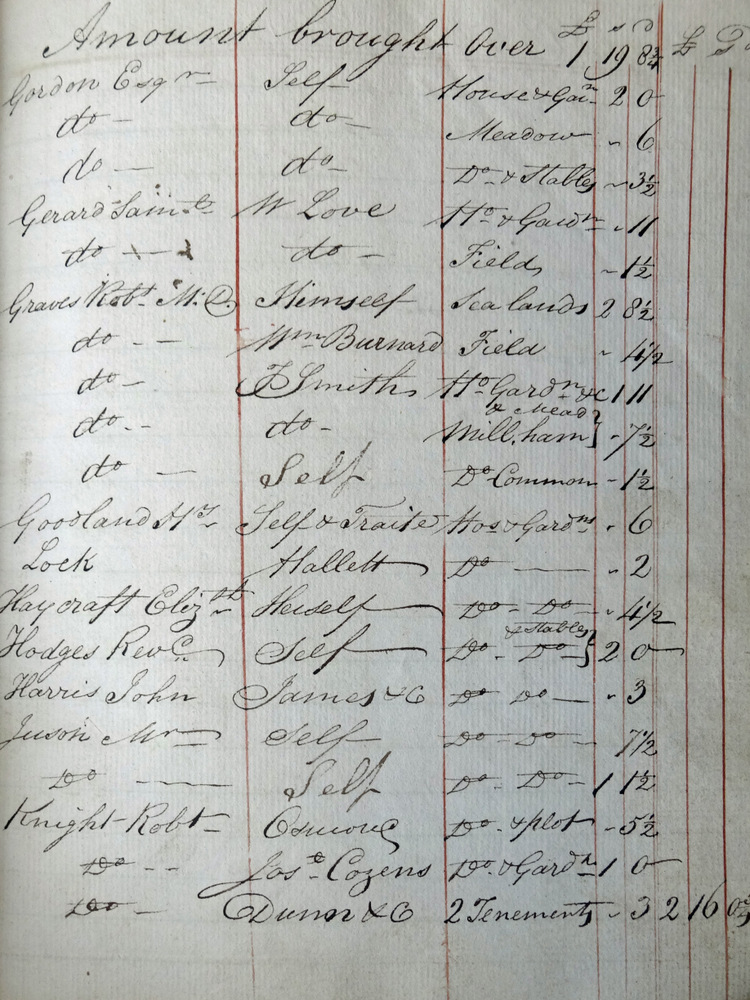 £ s d
Amount brought Over £ 1 19 8¾ £
Gordon Esqr Self House & Garn 2 0
do do Meadow - 6
do do Do & Stables - 3½
Gerard Saml W Love Ho & Gardn - 11
do do Field - 1½
Graves Robt M.D. Himself Sea lands 2 8½
do Wm Burnard Field - 4½
do J Smith Ho Gardn &c 1 11
& Mead
do do Millham - 7½
do Self Do Common - 1½
Goodland Hy Self & Traite Hos & Gardns - 6
Lock Hallett Do - 2
Haycraft Elizth Herself Do Do - 4½
& Stables
Hodges Revd Self Do Do 2 0
Harris John James & C Do Do - 3
Juson Mr Self Do Do 7½
Do Self Do Do 1 1½
Knight Robt Osmond Do & plot - 5½
Do Jose Cozens Do & Gardn 1 0
Do Dunn & C 2 Tenements - 3 2 16